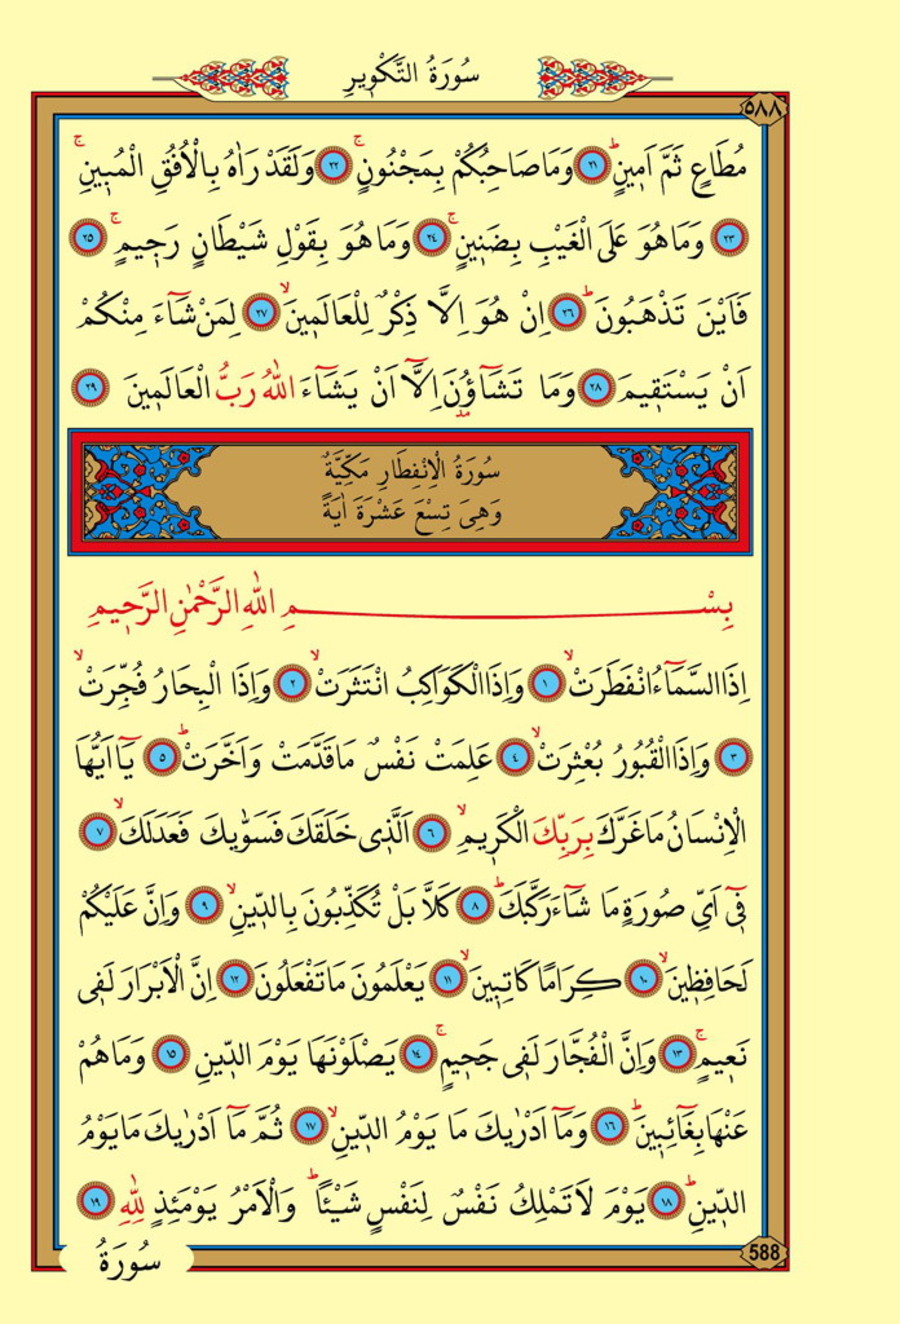 سُورَةُ التَّكْوٖيرِ
٥٨٨
مُطَاعٍ ثَمَّ اَمٖينٍۜ ﴿٢١﴾ وَمَا صَاحِبُكُمْ بِمَجْنُونٍۚ ﴿٢٢﴾ وَلَقَدْ رَاٰهُ بِالْاُفُقِ الْمُبٖينِۚ
﴿٢٣﴾ وَمَا هُوَ عَلَى الْغَيْبِ بِضَنٖينٍۚ ﴿٢٤﴾ وَمَا هُوَ بِقَوْلِ شَيْطَانٍ رَجٖيمٍۚ ﴿٢٥﴾
فَاَيْنَ تَذْهَبُونَۜ ﴿٢٦﴾ اِنْ هُوَ اِلَّا ذِكْرٌ لِلْعَالَمٖينَۙ ﴿٢٧﴾ لِمَنْ شَٓاءَ مِنْكُمْ
اَنْ يَسْتَقٖيمَ ﴿٢٨﴾ وَمَا تَشَٓاؤُ۫نَ اِلَّٓا اَنْ يَشَٓاءَ اللّٰهُ رَبُّ الْعَالَمٖينَ ﴿٢٩﴾
سُورَةُ الْاِنْفِطَارِ مَكِّيَّةٌ
وَهِىَ تِسْعَ عَشْرَةَ اٰيَةً
بِسْمِ اللّٰهِ الرَّحْمٰنِ الرَّحٖيمِ
اِذَا السَّمَٓاءُ انْفَطَرَتْۙ ﴿١﴾ وَاِذَا الْكَوَاكِبُ انْتَثَرَتْۙ ﴿٢﴾ وَاِذَا الْبِحَارُ فُجِّرَتْۙ
﴿٣﴾ وَاِذَا الْقُبُورُ بُعْثِرَتْۙ ﴿٤﴾ عَلِمَتْ نَفْسٌ مَا قَدَّمَتْ وَاَخَّرَتْۜ ﴿٥﴾ يَٓا اَيُّهَا
الْاِنْسَانُ مَا غَرَّكَ بِرَبِّكَ الْكَرٖيمِۙ ﴿٦﴾ اَلَّذٖى خَلَقَكَ فَسَوّٰيكَ فَعَدَلَكَۙ ﴿٧﴾
فٖٓى اَىِّ صُورَةٍ مَا شَٓاءَ رَكَّبَكَۜ ﴿٨﴾ كَلَّا بَلْ تُكَذِّبُونَ بِالدّٖينِۙ ﴿٩﴾ وَاِنَّ عَلَيْكُمْ
لَحَافِظٖينَۙ ﴿١٠﴾ كِرَامًا كَاتِبٖينَۙ ﴿١١﴾ يَعْلَمُونَ مَا تَفْعَلُونَ ﴿١٢﴾ اِنَّ الْاَبْرَارَ لَفٖى
نَعٖيمٍۚ ﴿١٣﴾ وَاِنَّ الْفُجَّارَ لَفٖى جَحٖيمٍۚ ﴿١٤﴾ يَصْلَوْنَهَا يَوْمَ الدّٖينِ ﴿١٥﴾ وَمَا هُمْ
عَنْهَا بِغَٓائِبٖينَۜ ﴿١٦﴾ وَمَٓا اَدْرٰيكَ مَا يَوْمُ الدّٖينِۙ ﴿١٧﴾ ثُمَّ مَٓا اَدْرٰيكَ مَا يَوْمُ
الدّٖينِۜ ﴿١٨﴾ يَوْمَ لَا تَمْلِكُ نَفْسٌ لِنَفْسٍ شَيْـًٔاۜ وَالْاَمْرُ يَوْمَئِذٍ لِلّٰهِ ﴿١٩﴾
588
سُورَةُ